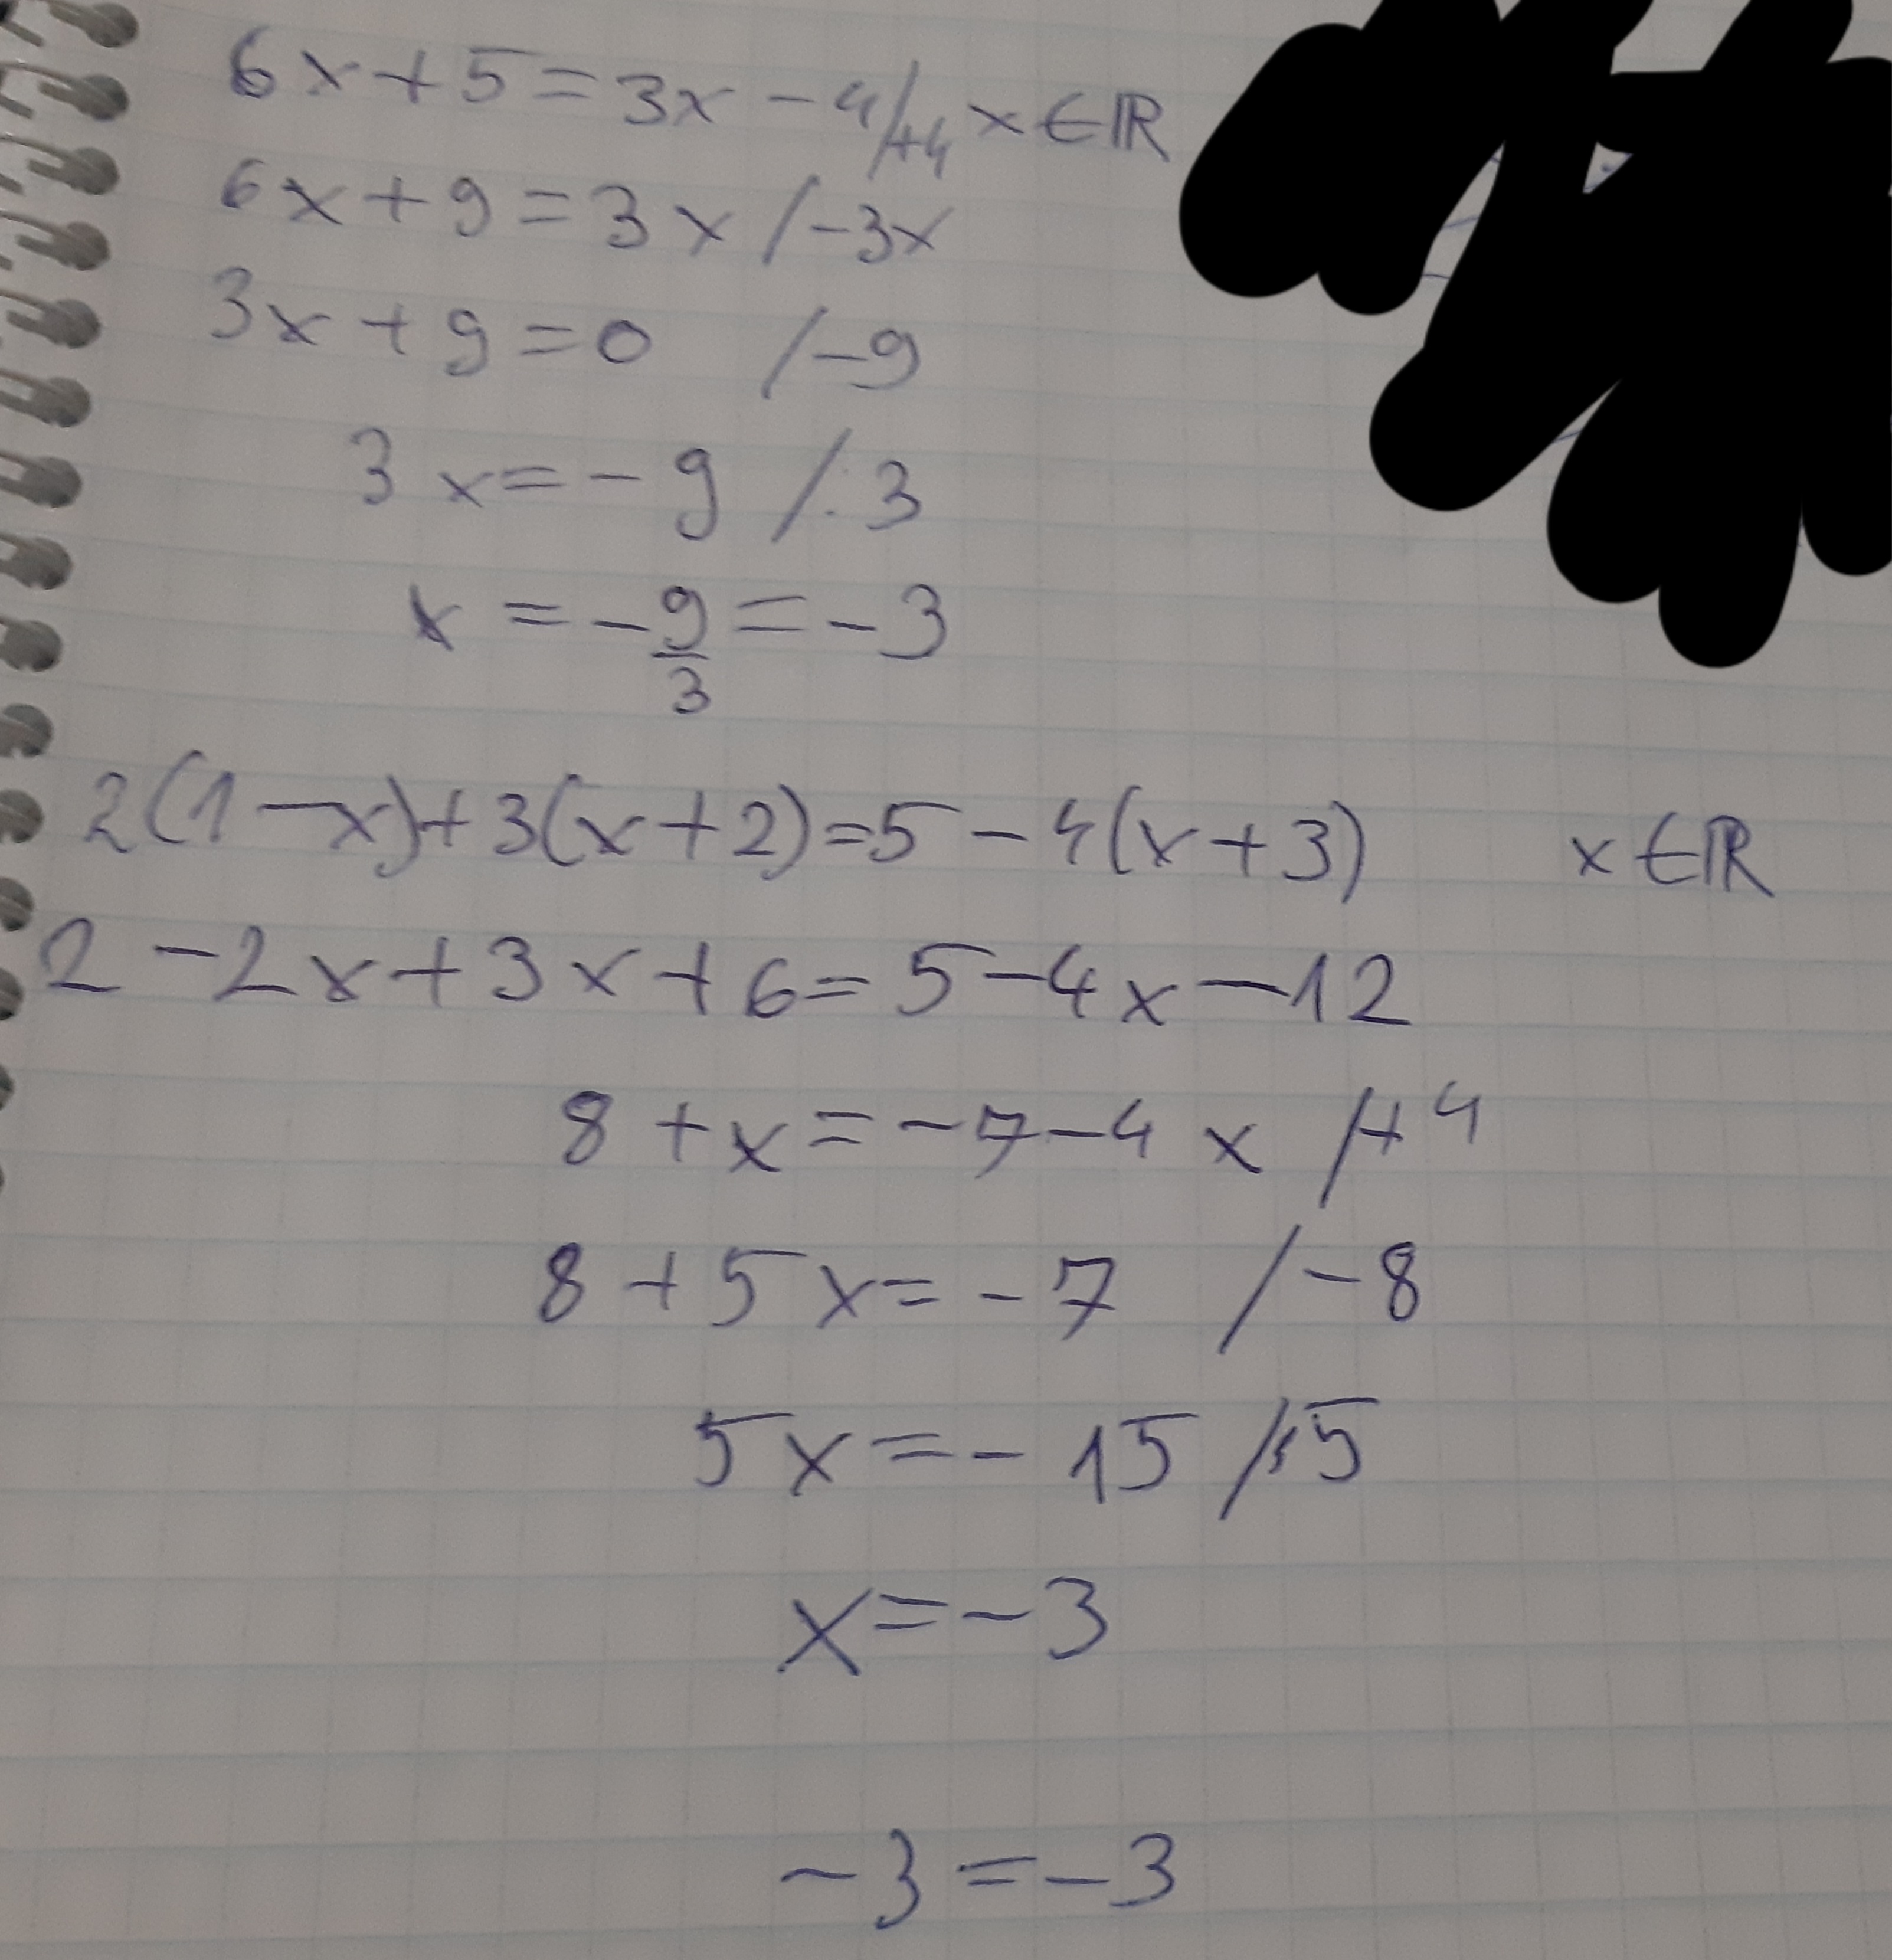 6x+5=3x-4/+4 x∈ℝ
6x+9=3x/-3x
3x+9=0 /-9
3x=-9 /:3
x=-9/3=-3
2(1-x)+3(x+2)=5-4(x+3) x∈ℝ
2-2x+3x+6=5-4x-12
8+x=-7-4x /+4
8+5x=-7 /-8
5x=-15 /:5
x=-3
-3=-3